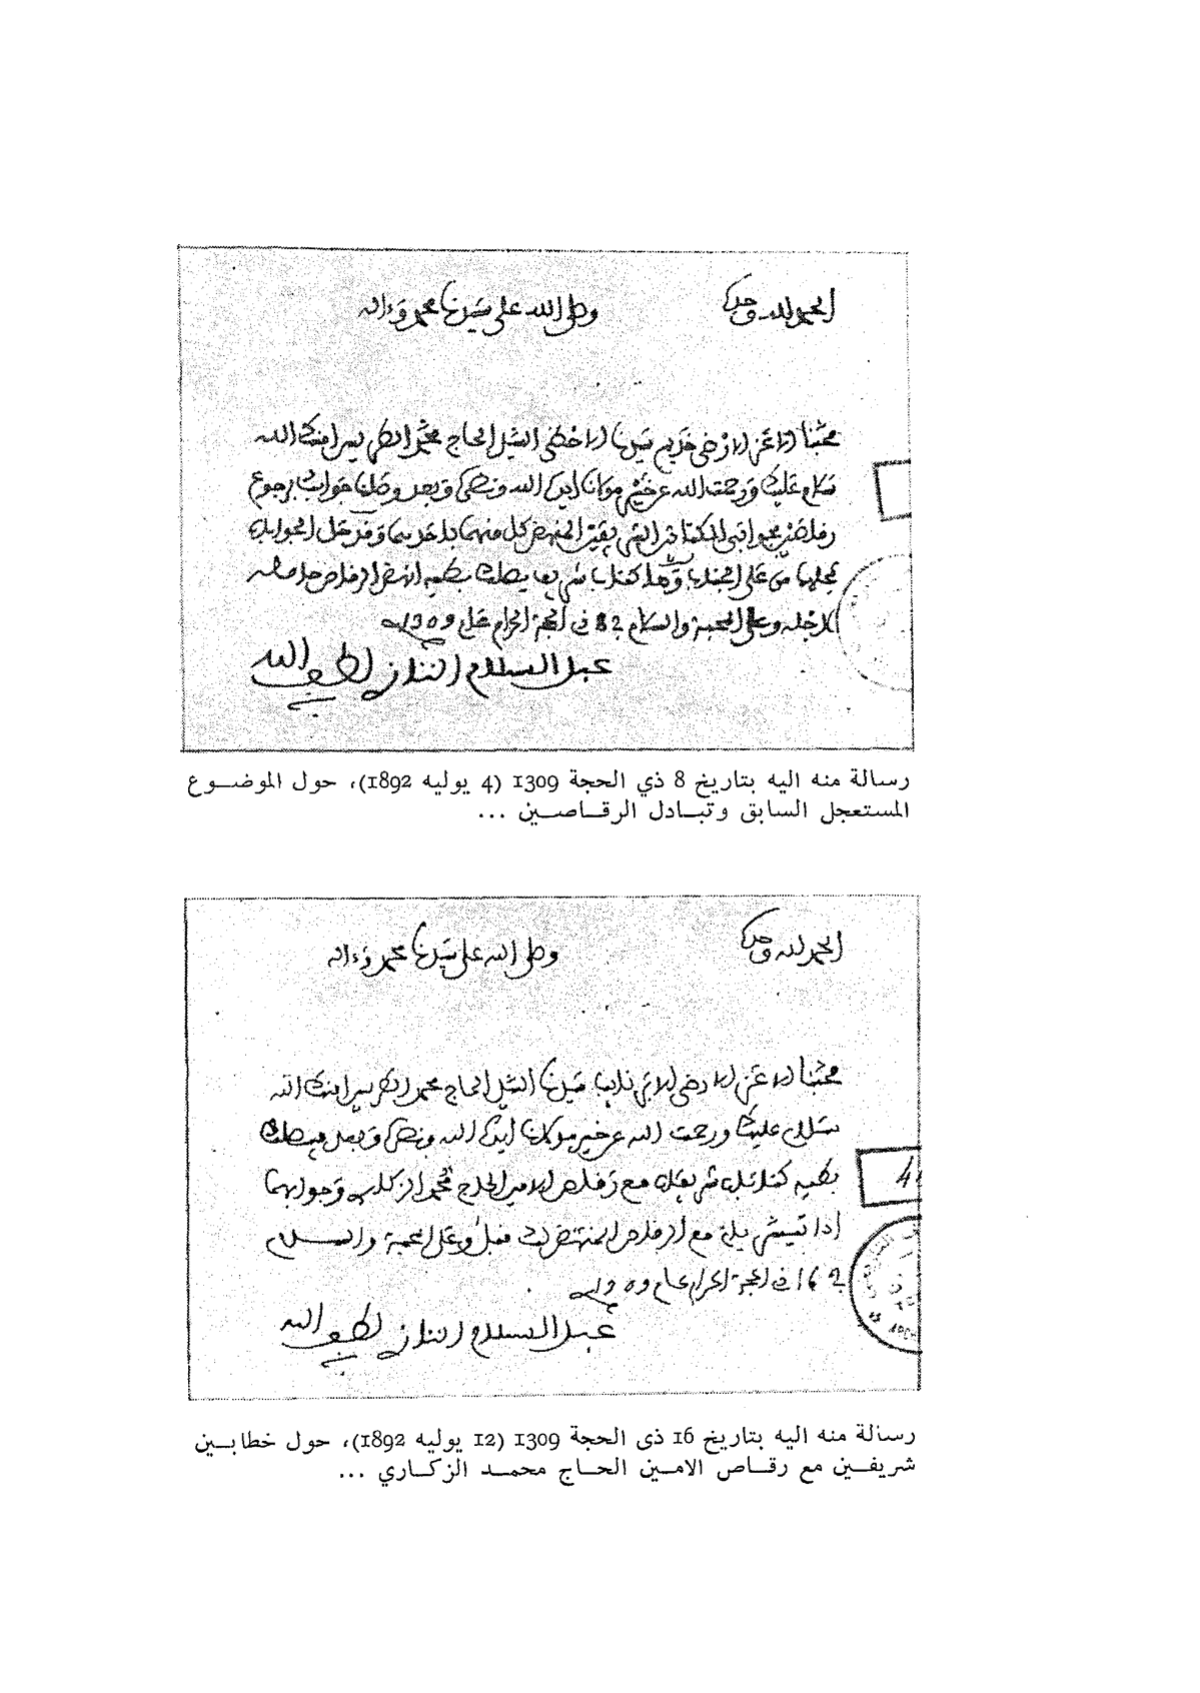 الحمد لله وحده
وصلى الله على سيدنا محمد وءاله
محبنا الاعز الارضى خديم سيدنا الاحظى السيد الحاج محمد الطريس امنك الله
سلام عليك ورحمت الله عن خير مولانا ايده الله ونصره وبعد وصلنا جوابك برجوع
كل منهما
كتاب شريف يصلك بطيه
لاجله وعلى المحبة والسلام 8 في الحجة الحرام عام 1309
عبد السلام التازي لطف الله
رسالة منه اليه بتاريخ 8 ذي الحجة 1309 (4 يوليه 1892)، حول الموضوع
المستعجل السابق وتبادل الرقاصين ...
الحمد لله وحده
وصلى الله على سيدنا محمد وءاله
محبنا الاعز الارضى نايب سيدنا السيد الحاج محمد الطريس امنك الله
سلام عليك ورحمت الله عن خير مولانا ايده الله ونصره وبعد فيصلك
بطيه كتابان شريفان مع رقاص الامين الحاج محمد الزكاري وجوابهما
اذا تيسر ياتي مع الرقاص وعلى المحبة والسلام
16 في الحجة الحرام عام 1309
عبد السلام التازي لطف الله
رسالة منه اليه بتاريخ 16 ذى الحجة 1309 (12 يوليه 1892)، حول خطابين
شريفين مع رقاص الامين الحاج محمد الزكاري ...